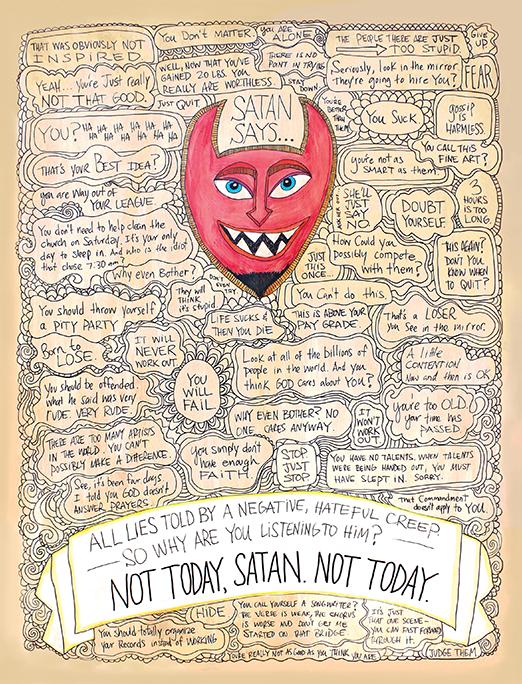 THAT WAS OBVIOUSLY NOT
INSPIRED
You Don't MATTER.
you ARE
ALONE
THE PEOPLE THERE ARE JUST
TOO STUPID.
GIVE
UP
YEAH... you're Just really
NOT THAT GOOD.
WELL, NOW THAT YOU'VE
GAINED 20 LBS. YOU
REALLY ARE WORTHLESS.
THERE IS NO
POINT IN TRYING
STAY
DOWN.
Seriously, look in the mirror.
They're going to hire You?
FEAR
JUST QUIT
SATAN
SAYS...
YOU'RE
BETTER
THAN
THEM.
You Suck.
gossip
is
HARMLESS.
YOU? HA HA HA HA HA HA HA
HA HA HA HA HA HA HA
THAT'S YOUR BEST IDEA?
YOU CALL THIS
FINE ART?
you're not as
SMART as them.
you are Way out of
YOUR LEAGUE.
SHE'LL
JUST
SAY
NO.
DOUBT
YOURSELF.
3
HOURS
IS TOO
LONG.
You don't need to help clean the
church on Saturday. It's your only
day to sleep in. And who is the idiot
that chose 7:30 am?
How Could You
possibly compete
with them?
THIS AGAIN?
DON'T YOU
KNOW WHEN
TO QUIT?
JUST
THIS
ONCE...
Why even Bother?
DON'T
EVEN
TRY
They will
THINK
it's stupid.
You Can't do this.
You should throw yourself
a PITY PARTY
LIFE SUCKS &
THEN YOU DIE
THIS IS ABOVE YOUR
PAY GRADE.
That's a LOSER
you See in the mirror.
Born to
LOSE.
IT WILL
NEVER
WORK OUT
Look at all of the billions of
people in the world. And you
think GOD cares about YOU?
A little
CONTENTION
Now and then is OK
YOU
WILL
FAIL
You should be offended.
What he said was very
RUDE. VERY RUDE.
WHY EVEN BOTHER? NO
ONE CARES ANYWAY.
IT
WON'T
WORK
OUT.
you're too OLD.
your time has
PASSED.
THERE ARE TOO MANY ARTISTS
IN THE WORLD. YOU CAN'T
POSSIBLY MAKE A DIFFERENCE.
You simply don't
have enough
FAITH.
STOP
JUST
STOP
YOU HAVE NO TALENTS. WHEN TALENTS
WERE BEING HANDED OUT, YOU MUST
HAVE SLEPT IN. SORRY.
See, it's been four days.
I told you GOD doesn't
ANSWER PRAYERS.
That Commandment
doesn't apply to YOU.
ALL LIES TOLD BY A NEGATIVE, HATEFUL CREEP.
SO WHY ARE YOU LISTENING TO HIM?
NOT TODAY, SATAN. NOT TODAY.
HIDE
YOU CALL YOURSELF A SONGWRITER?
THE VERSE IS WEAK, THE CHORUS
IS WORSE AND DON'T GET ME
STARTED ON THAT BRIDGE.
IT'S JUST
THAT ONE SCENE-
YOU CAN FAST FORWARD
THROUGH IT.
You should totally organize
your Records instead of WORKING
YOU'RE REALLY NOT AS GOOD AS YOU THINK YOU ARE.
JUDGE THEM